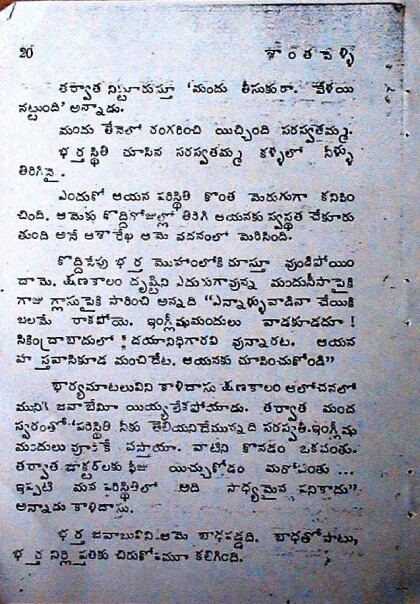 20
శాంతవల్లి
తర్వాత నిట్టూరుస్తూ 'మందు తీసుకురా. వేళయి
నట్టుంది' అన్నాడు.
మందు తేనెలో రంగరించి యిచ్చింది సరస్వతమ్మ.
భర్తస్థితి చూసిన సరస్వతమ్మ కళ్ళలో నీళ్ళు
తిరిగినై.
ఎందుకో ఆయన పరిస్థితి కొంత మెరుగుగా కనిపిం
చింది. ఆమెకు కొద్దిరోజుల్లో తిరిగి ఆయనకు స్వస్థత చేకూరు
తుంది అనే ఆశారేఖ ఆమె వదనంలో మెరిసింది.
కొద్దిసేపు భర్త మొహంలోకి చూస్తూ వుండిపోయిం
దామె. క్షణకాలం దృష్టిని ఎదురుగావున్న మందుసీసాపైకి
గాజు గ్లాసుపైకి సారించి అన్నది "ఎన్నాళ్ళువాడినా చేయికి
బలమే రాకపోయె. ఇంగ్లీషుమందులు వాడకూడదూ!
సికింద్రాబాదులో దయానిధిగారవి వున్నారట. ఆయన
హస్తవాసికూడ మంచిదేట. ఆయనకు చూపించుకోండి"
భార్యమాటలువిని కాళిదాసు క్షణకాలం ఆలోచనలో
మునిగి జవాబేమీ యియ్యలేకపోయాడు. తర్వాత మంద
స్వరంతో 'పరిస్థితి నీకు తెలియనిదేమున్నది సరస్వతీ. ఇంగ్లీషు
మందులు వూరికే వస్తాయా. వాటిని కొనడం ఒకవంతు.
తర్వాత డాక్టర్లకు ఫీజు యిచ్చుకోడం మరోవంతు ...
ఇప్పటి మన పరిస్థితిలో అది సాధ్యమైన పనికాదు"
అన్నాడు కాళిదాసు.
భర్త జవాబువిని ఆమె బాధపడ్డది. బాధతోపాటు,
భర్త నిర్లిప్తతకు చిరుకోపమూ కలిగింది.